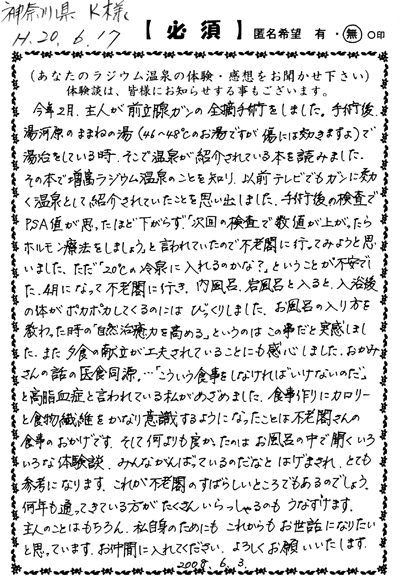 神奈川県 K様
H.20.6.17
【必須】 匿名希望 有・無 ○印
(あなたのラジウム温泉の体験・感想をお聞かせ下さい)
体験談は、皆様にお知らせする事もございます。
今年2月、主人が前立腺ガンの全摘手術をしました。手術後、
湯河原のままねの湯(46〜48℃のお湯ですが傷には効きますよ)で
湯治をしている時、そこで温泉が紹介されている本を読みました。
その本で増富ラジウム温泉のことを知り、以前テレビでもガンに効
く温泉として紹介されていたことを思い出しました。手術後の検査で
PSA値が思ったほど下がらず「次回の検査で数値が上がったら
ホルモン療法をしましょう」と言われていたので不老閣に行ってみようと思
いました。ただ「20℃の冷泉に入れるのかな?」ということが不安でし
た。4月になって不老閣に行き、内風呂、岩風呂と入ると、入浴後
の体がポカポカしてくるのにはびっくりしました。お風呂の入り方を
教わった時の「自然治癒力を高める」というのはこの事だと実感しまし
た。また夕食の献立が工夫されていることにも感心しました。おかみ
さんの話の医食同源…「こういう食事をしなければいけないのだ」
と高脂血症と言われている私がめざめました。食事作りにカロリー
と食物繊維をかなり意識するようになったことは不老閣さんの
食事のおかげです。そして何よりも良かったのはお風呂の中で聞くいろ
いろな体験談。みんながんばっているのだなとはげまされ、とても
参考になります。これが不老閣のすばらしいところでもあるのでしょう。
何年も通ってきている方がたくさんいらっしゃるのもうなずけます。
主人のことはもちろん、私自身のためにもこれからもお世話になりたい
と思っています。お仲間に入れてください。よろしくお願いいたします。
2008.6.3.